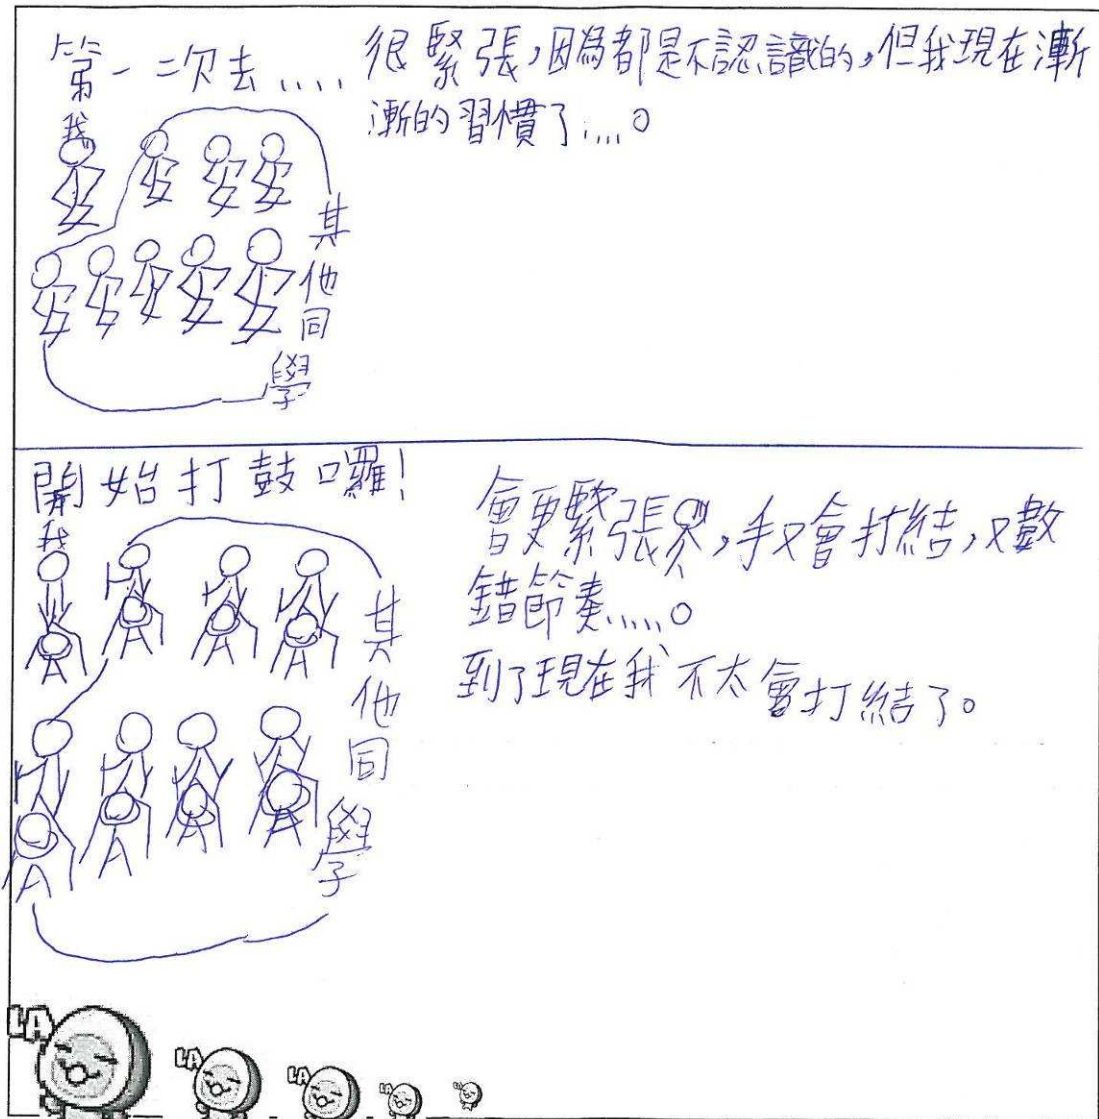 第一次去....
很緊張,因為都是不認識的,但我現在漸
漸的習慣了....。
我
其他同學
開始打鼓囉!
我
其他同學
會更緊張,手又會打結,又數
錯節奏.....。
到了現在我不太會打結了。
LA
LA
LA
LA